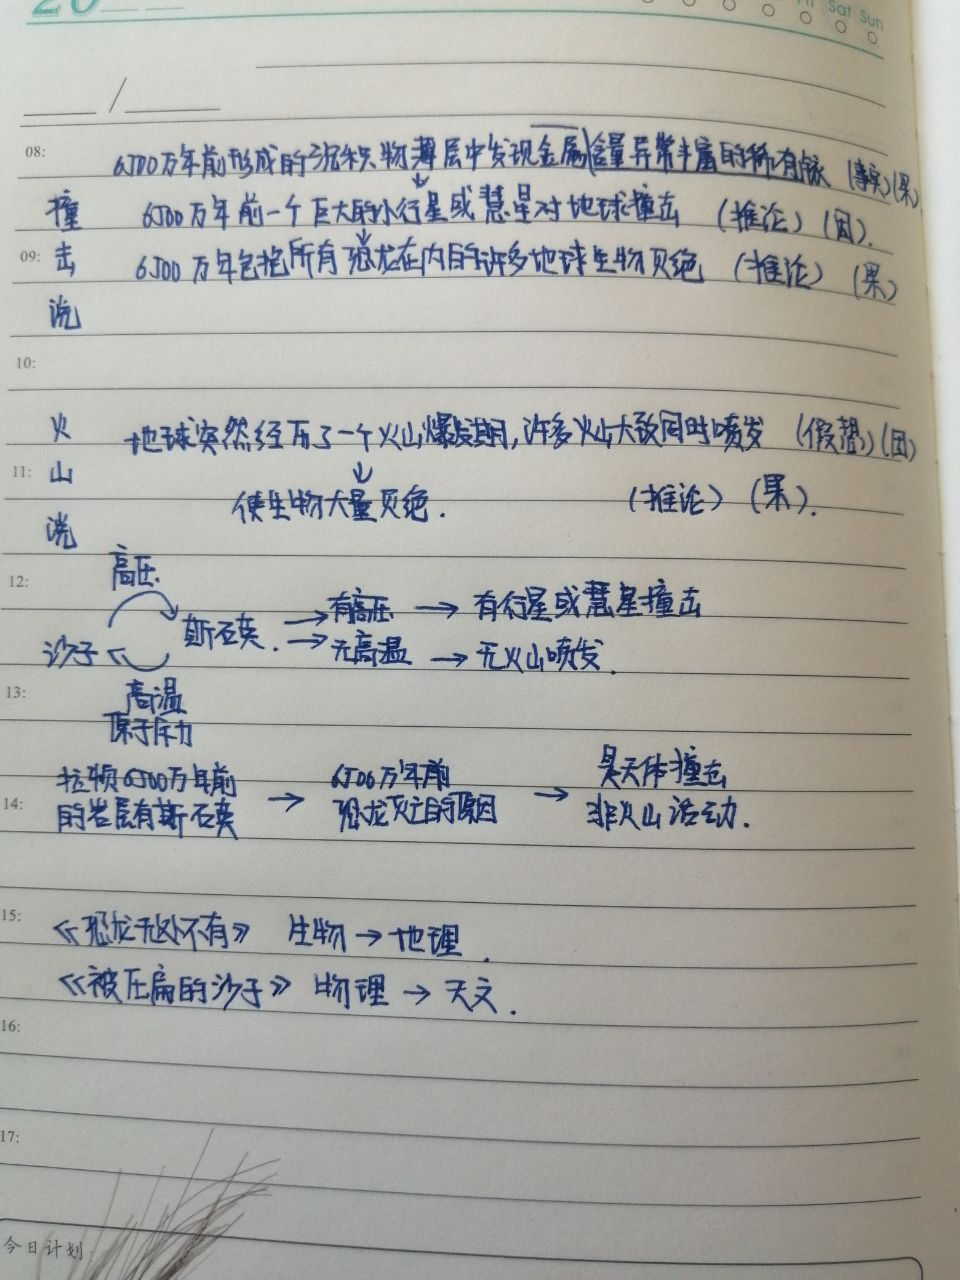 20
Fri Sat Sun
08:
6500万年前形成的沉积物薄层中发现金属含量异常丰富的稀有铱 (事实)(果)
↓
撞 6500万年前一个巨大的小行星或慧星对地球撞击 (推论)(因).
↓
09: 击 6500万年包括所有恐龙在内的许多地球生物灭绝 (推论) (果)
说
10:
火 地球突然经历了一个火山爆发期,许多火山大致同时喷发 (假想)(因)
11: 山 ↓
使生物大量灭绝. (推论) (果).
说
12: 高压
沙子 斯石英. → 有高压 → 有行星或慧星撞击
→ 无高温 → 无火山喷发.
13: 高温
原子压力
拉顿6500万年前 6500万年前 是天体撞击
14: 的岩层有斯石英 → 恐龙灭亡的原因 → 非火山活动.
15: 《恐龙无处不有》 生物→地理.
《被压扁的沙子》 物理→天文.
16:
17:
今日计划